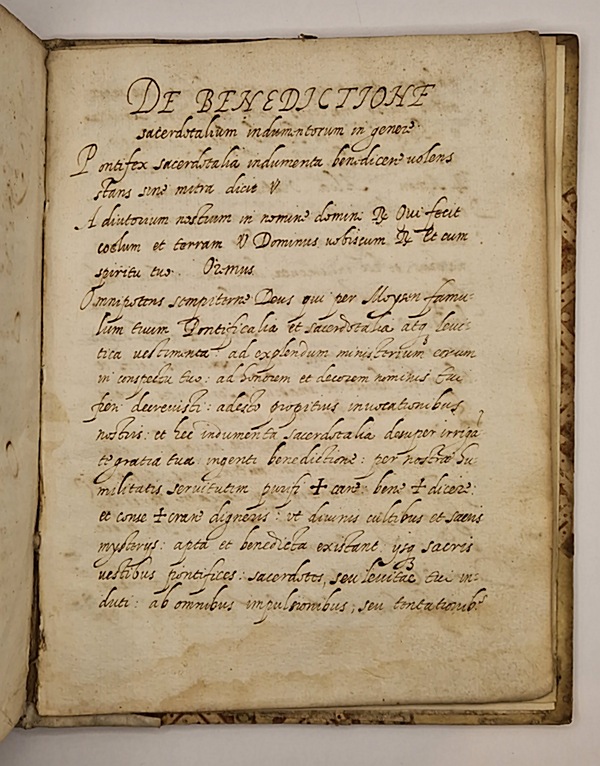 DE BENEDICTIONE
sacerdotalium indumentorum in genere
Pontifex sacerdotalia indumenta benedicere uolens
stans sine mitra dicit ℣
Adiutorium nostrum in nomine domini ℟ Qui fecit
coelum et terram ℣ Dominus uobiscum ℟ Et cum
spiritu tuo. Oremus
Omnipotens sempiterne Deus qui per Moysen famu-
lum tuum Pontificalia et sacerdotalia atq3 leui-
tica vestimenta: ad explendum ministerium eorum
in conspectu tuo: ad honorem et decorem nominis tui
fieri decreuisti: adesto propitius inuocationibus
nostris: et hec indumenta sacerdotalia desuper irriga
te gratia tua ingenti benedictione: per nostræ hu-
militatis seruitutem purifi ✝ care bene ✝ dicere:
et conse ✝ crare digneris: vt diuinis cultibus et sacris
mysterys: apta et benedicta existant: ysq3 sacris
vestibus pontifices: sacerdotes, seu leuitæ tui in-
duti: ab omnibus impulsionibus, seu tentationib3